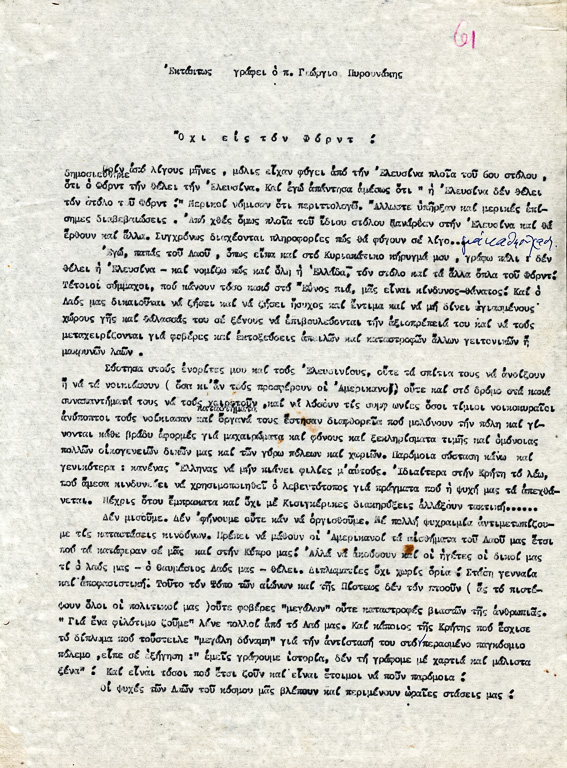 61
Ἐκτάκτως γράφει ὁ π. Γεώργιο Πυρουνάκης
Ὄχι εἰς τόν Φόρντ !
Πρίν ἀπό λίγους μῆνες , μόλις εἶχαν φύγει ἀπό τήν Ἐλευσίνα πλοῖα τοῦ 6ου στόλου ,
δημοσιεύθηκε
ὅτι ὁ Φόρντ τήν θέλει τήν Ἐλευσίνα. Καί ἐγώ ἀπάντησα ἀμέσως ὅτι " ἡ Ἐλευσίνα δέν θέλει
τόν στόλο τοῦ Φόρντ !" Μερικοί νόμισαν ὅτι περιττολογῶ. Ἄλλωστε ὑπῆρξαν καί μερικές ἐπί-
σημες διαβεβαιώσεις . Ἀπό χθές ὅμως πλοῖα τοῦ ἴδιου στόλου ξανάρθαν στήν Ἐλευσίνα καί θά
ἔρθουν καί ἄλλα. Συγχρόνως διαχέονται πληροφορίες πώς θά φύγουν σέ λίγο...
Ἐγώ, παπάς τοῦ Λαοῦ , ὅπως εἶπα καί στό Κυριακάτικο κήρυγμά μου , γράφω πάλι : δέν
θέλει ἡ Ἐλευσίνα - καί νομίζω πώς καί ὅλη ἡ Ἑλλάδα, τόν στόλο καί τά ἄλλα ὅπλα τοῦ Φόρντ!
Τέτοιοι σύμμαχοι, πού κάνουν τόσο κακό στό Ἔθνος πιά, μᾶς εἶναι κίνδυνος-θάνατος! Καί ὁ
Λαός μας δικαιοῦται νά ζήσει καί νά ζήσει ἥσυχος καί ἔντιμα καί νά μή δίνει ἁγιασμένους
χώρους γῆς καί θάλασσάς του σέ ξένους νά ἐπιβουλεύονται τήν ἀξιοπρέπειά του καί νά τούς
μεταχειρίζονται γιά φοβέρες καί ἐκτοξεύσεις ἀπειλῶν καί καταστροφῶν ἄλλων γειτονικῶν ἤ
μακρυνῶν λαῶν .
Σύστησα στούς ἐνορίτες μου καί τούς Ἐλευσινίους, οὔτε τά σπίτια τους νά ἀνοίξουν
ἤ νά τά νοικιάσουν ( ὅσα κι'ἄν τούς προσφέρουν οἱ Ἀμερικανοί) οὔτε καί στό δρόμο στά κακά
συναπαντήματά τους νά τούς χαιρετοῦν ,καί νά λύσουν τίς συμφωνίες ὅσοι τίμιοι νοικοκυραῖοι
καταστήματα
ἀνύποπτοι τούς νοίκιασαν καί ὄργανά τους ἔστησαν διαφθορεῖα πού μολύνουν τήν πόλη καί γί-
νονται κάθε βράδυ ἀφορμές γιά μαχαιρώματα καί φόνους καί ξεκληρίσματα τιμῆς καί ὁμόνοιας
πολλῶν οἰκογενειῶν δικῶν μας καί τῶν γύρω πόλεων καί χωριῶν. Παρόμοια σύσταση κάνω καί
γενικότερα : κανένας Ἕλληνας νά μήν κιάνει φιλίες μ'αὐτούς. Ἰδιαίτερα στήν Κρήτη τό λέω,
πού ἄμεσα κινδυνεύει νά χρησιμοποιηθεῖ ὁ λεβεντότοπος γιά πράγματα πού ἡ ψυχή μας τά ἀπεχθά-
νεται. Μέχρις ὅτου ἔμπρακτα καί ὄχι μέ Κισιγκέρικες διακηρύξεις ἀλλάξουν τακτική......
Δέν μισοῦμε. Δέν ἀφήνουμε οὔτε κάν νά ὀργισθοῦμε. Μέ πολλή ψυχραιμία ἀντιμετωπίζου-
με τίς καταστάσεις κινδύνων. Πρέπει νά μάθουν οἱ Ἀμερικανοί τά αἰσθήματα τοῦ Λαοῦ μας ἔτσι
πού τά κατάφεραν σέ μᾶς καί στήν Κύπρο μας! Ἀλλά νά ἀκούσουν καί οἱ ἡγέτες οἱ δικοί μας
τί ὁ λαός μας - ὁ θαυμάσιος Λαός μας - θέλει. Διπλωματίες ὄχι χωρίς ὅρια ! Στάση γενναία
καί ἀποφασιστική. Τοῦτο τόν Τόπο τῶν αἰώνων καί τῆς Πίστεως δέν τόν πτοοῦν ( ἄς τό πιστέ-
ψουν ὅλοι οἱ πολιτικοί μας )οὔτε φοβέρες "μεγάλων" οὔτε καταστροφές βιαστῶν τῆς ἀνθρωπιᾶς.
" Γιά ἕνα φιλότιμο ζοῦμε" λένε πολλοί ἀπό τό Λαό μας. Καί κάποιος τῆς Κρήτης πού ἔσχισε
τό δίπλωμα πού τοὔστειλε "μεγάλη δύναμη" γιά τήν ἀντίστασή του στό περασμένο παγκόσμιο
πόλεμο ,εἶπε σέ ἐξήγηση :" ἐμεῖς γράφουμε ἱστορία, δέν τή γράφομε μέ χαρτιά καί μάλιστα
ξένα" ! Καί εἶναι τόσοι πού ἔτσι ζοῦν καί εἶναι ἕτοιμοι νά ποῦν παρόμοια !
Οἱ ψυχές τῶν Λαῶν τοῦ κόσμου μᾶς βλέπουν καί περιμένουν ὡραῖες στάσεις μας !